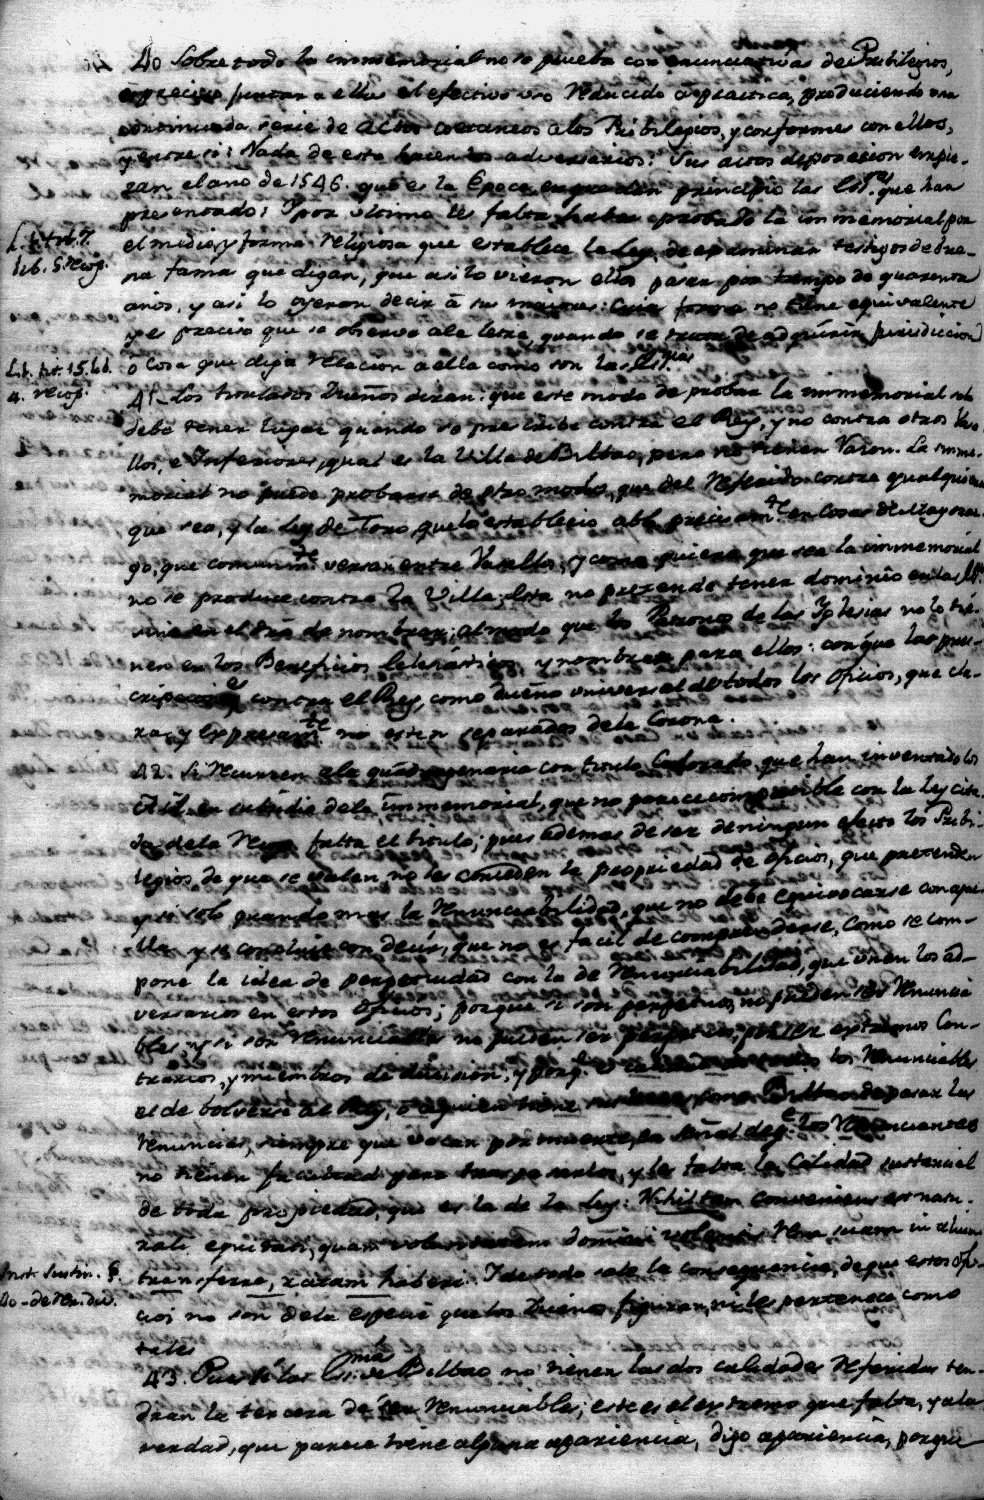 40 Sobre todo la inmemorial no se prueba con enunciativas de Pribilegios,
es preciso juntar a ellas el efectivo uso reducido a practica, produciendo una
continuada serie de actos coetaneos a los Pribilegios, y conformes con ellos,
y entre si: Nada de esto hacen los adversarios: Sus actos de posesion empie-
zan el año de 1546. que es la Epoca en que dan principio las Es.as que han
presentado: Y por ultimo les falta haber probado la inmemorial por
L. 1. tit. 7. el medio, y forma religiosa que establece la Ley, de examinar testigos de bue-
lib. 5. recop. na fama que digan, que asi lo vieron ellos pasar por tiempo de quarenta
años, y asi lo oyeron decir á sus maiores: Cuia forma no tiene equivalente
y es preciso que se observe a la letra, quando se trata de adquirir jurisdiccion
L. 1. tit. 15. lib. ó cosa que diga relacion a ella como son las
4. recop. 41. Los titulados Dueños diran: que este modo de probar la inmemorial solo
debe tener lugar quando se prescribe contra el Rey, y no contra otros Vasa-
llos, e Inferiores, qual es la Villa de Bilbao, pero no tienen razon. La inme-
morial no puede probarse de otro modo, que del referido contra qualquiera
que sea, y la Ley de Toro, que lo establecio, abla precisam.te en cosas de Mayoraz-
go, que comunm.te versan entre Vasallos; y como quiera que sea la inmemorial
no se produce contra la Villa. Esta no pretende tener dominio en las
sino en el dro de nombrar; al modo que los Patronos de las Yglesias no lo tie-
nen en los Beneficios Eclesiasticos, y nombran para ellos: con que las pres-
cripciones contra el Rey, como dueño universal de todos los Oficios, que cla-
ra, y expresam.te no esten separados de la Corona.
42. Si recurren a la quadragenaria con titulo colorado que han inventado los
AA. en subsidio de la inmemorial, que no parece compatible con la Ley cita-
da de la Recop. falta el titulo; pues ademas de ser de ningun efecto los Pribi-
legios, de que se valen, no les conceden la propriedad de Oficios, que pretenden
y si solo quando mas la renunciabilidad, que no debe equivocarse con aque-
lla, y se concluie con decir, que no es facil de comprenderse, como se com-
pone la idea de perpetuidad con la de renunciabilidad, que unen los ad-
versarios en estos Oficios; porque si son perpetuos, no pueden ser renuncia-
bles, y si son renunciables no pueden ser perpetuos, por ser extremos Con-
trarios, y miembros de division, y porq.e es los renunciables
el de bolverse al Rey, o a quien tiene pasar las
renuncias, siempre que vacan por muerte, en señal de q.e los renunciantes
no tienen facultad para traspasarlos, y les falta la Calidad sustancial
de toda propiedad, que es la de la Ley: Nihil tam conveniens est natu-
rali equitati, quam voluntatem domini volentis rem suam in alium
Inst. Justin. §. transferre, ratam haberi. Y de todo sale la consequencia, de que estos ofi-
40 - de rer. div. cios no son de la especie que los Dueños figuran, ni les pertenece como
tales
43. Pues si las de Bilbao no tienen las dos calidades referidas ten-
dran la tercera de ser renunciables; este es el extremo que falta, y a la
verdad, que parece tiene alguna apariencia, digo apariencia, porque